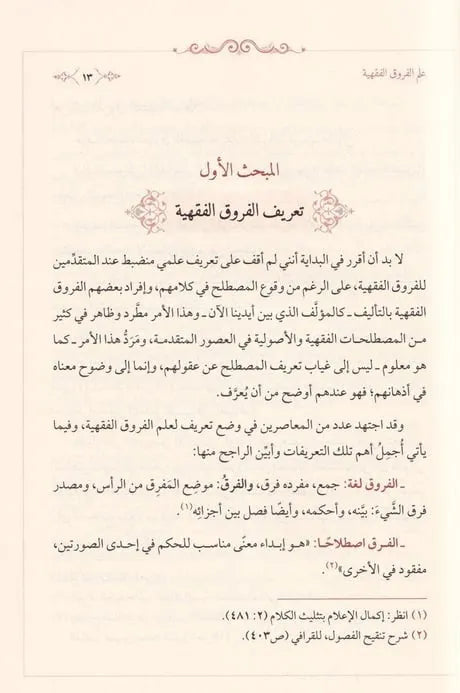 علم الفروق الفقهية
١٣
المبحث الأول
تعريف الفروق الفقهية
لا بد أن أقرر في البداية أنني لم أقف على تعريف علمي منضبط عند المتقدِّمين
للفروق الفقهية، على الرغم من وقوع المصطلح في كلامهم، وإفراد بعضهم الفروق
الفقهية بالتأليف ـ كالمؤلَّف الذي بين أيدينا الآن ـ وهذا الأمر مطَّرد وظاهر في كثير
من المصطلحات الفقهية والأصولية في العصور المتقدمة، ومَرَدُّ هذا الأمر ـ كما
هو معلوم ـ ليس إلى غياب تعريف المصطلح عن عقولهم، وإنما إلى وضوح معناه
في أذهانهم؛ فهو عندهم أوضح من أن يُعرَّف.
وقد اجتهد عدد من المعاصرين في وضع تعريف لعلم الفروق الفقهية، وفيما
يأتي أُجمِلُ أهم تلك التعريفات وأبيِّن الراجح منها:
ـ الفروق لغة: جمع، مفرده فرق، والفرقُ: موضِع المَفرِق من الرأس، ومصدر
فرق الشَّيءَ: بيَّنه، وأحكمه، وأيضًا فصل بين أجزائه(١).
ـ الفرق اصطلاحًا: «هو إبداء معنًى مناسب للحكم في إحدى الصورتين،
مفقود في الأخرى»(٢).
(١) انظر: إكمال الإعلام بتثليث الكلام (٢: ٤٨١).
(٢) شرح تنقيح الفصول، للقرافي (ص٤٠٣).